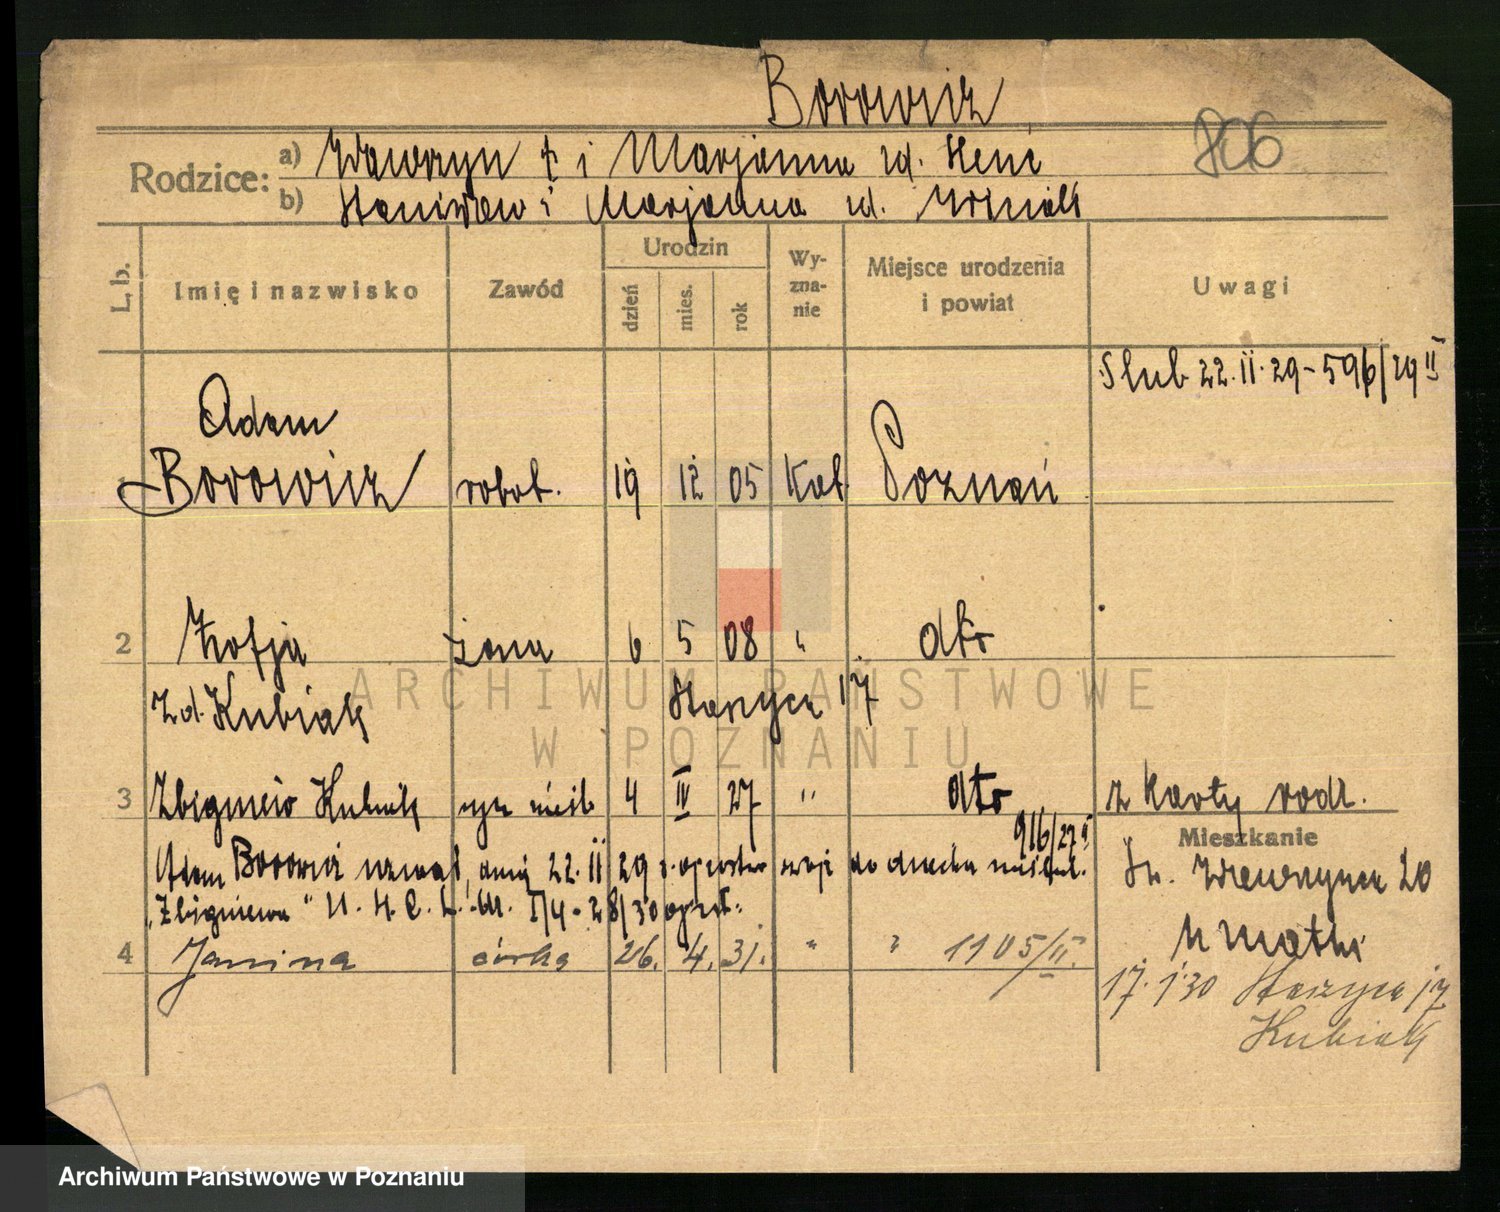 Borowicz
806
Rodzice: a) Wawrzyn † i Marjanna zd. Heni
b) Stanisław i Marjanna zd.
L. b. Imię i nazwisko Zawód Urodzin dzień mies. rok Wy-zna-nie Miejsce urodzenia i powiat Uwagi
Slub 22.II.29-596/29 II
Adam
Borowicz robot. 19 12 05 Kat. Poznań
2 Zofja żona 6 5 08 " dto
zd. Kubiak Starzyca 17
3 Zbigniew Kubiak syn nieśl 4 IV 27 " dto z karty rodz.
916/27 II
Mieszkanie
Adam Borowicz uznał dnia 22.II 29 do dziecka
"Zbigniewa" U.S.C.
Św. Wawrzyńca 20
u matki
4 Janina córka 26. 4. 31. " " 1105/II.
17.1.30 Starzyca 17
Kubiak
ARCHIWUM PAŃSTWOWE
W POZNANIU
Archiwum Państwowe w Poznaniu